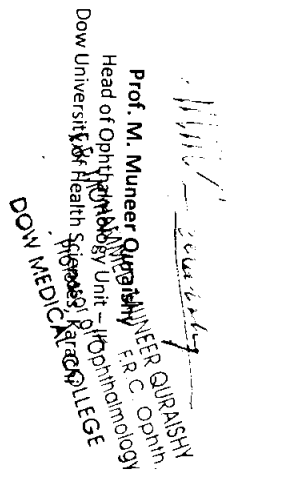 Prof. M. Muneer Quraishy
Head of Ophthalmology Unit – II
Dow University of Health Sciences, Karachi
MUNEER QURAISHY
F.R.C. Ophth.
of Ophthalmology
DOW MEDICAL COLLEGE